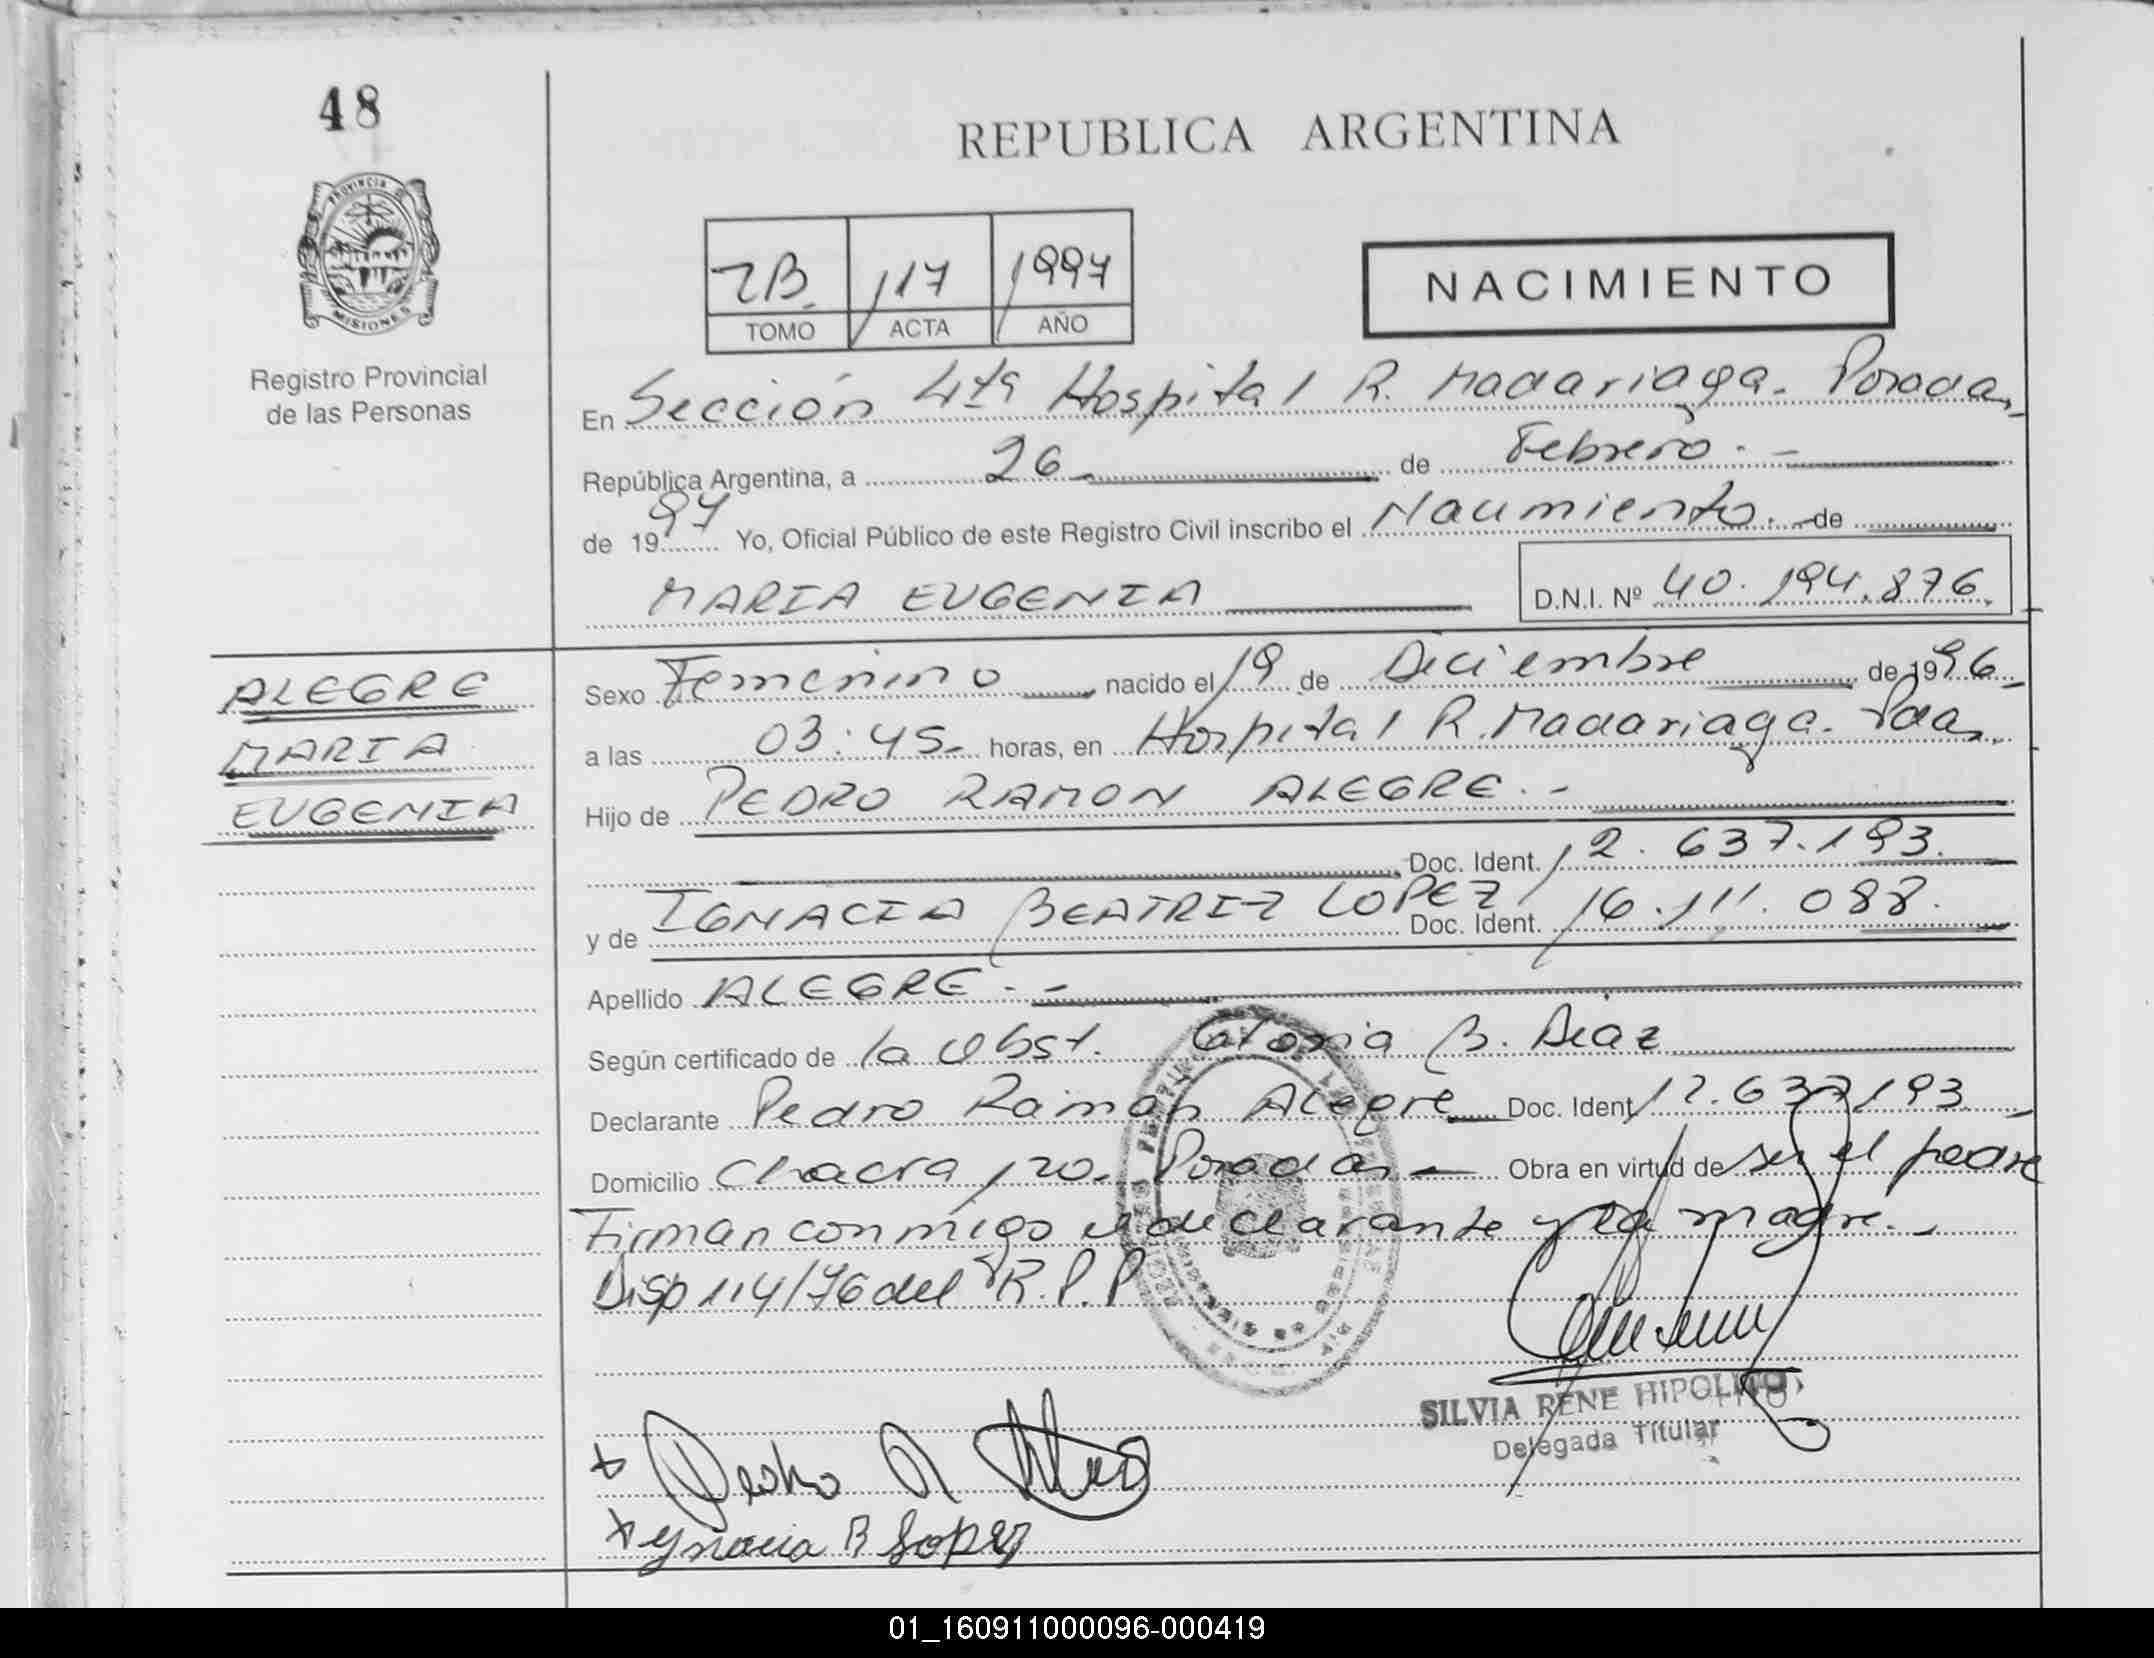 48
REPUBLICA ARGENTINA
PROVINCIA D
MISIONES
Registro Provincial
de las Personas
117 1997
TOMO ACTA AÑO
NACIMIENTO
En Sección 4ta Hospital R. Madariaga. Posadas
República Argentina, a 26 de Febrero.-
de 1997 Yo, Oficial Público de este Registro Civil inscribo el Nacimiento.- de
MARIA EUGENIA D.N.I. Nº 40.194.876.
ALEGRE
MARIA
EUGENIA
Sexo Femenino nacido el 19 de Diciembre de 1996
a las 03:45.- horas, en Hospital R. Madariaga. Pdas.
Hijo de PEDRO RAMON ALEGRE.-
Doc. Ident. 12.637.193.
y de IGNACIA BEATRIZ LOPEZ Doc. Ident. 16.111.088.
Apellido ALEGRE.-
Según certificado de la Obst. Gloria B. Diaz
Declarante Pedro Ramon Alegre Doc. Ident. 12.637.193
Domicilio Chacra 120. Posadas Obra en virtud de ser el padre
Firman conmigo el declarante y la madre.-
Disp 114/76 del R.P.P
SILVIA RENE HIPOLITO
Delegada Titular
Pedro R
Ygnacia B Lopez
01_160911000096-000419